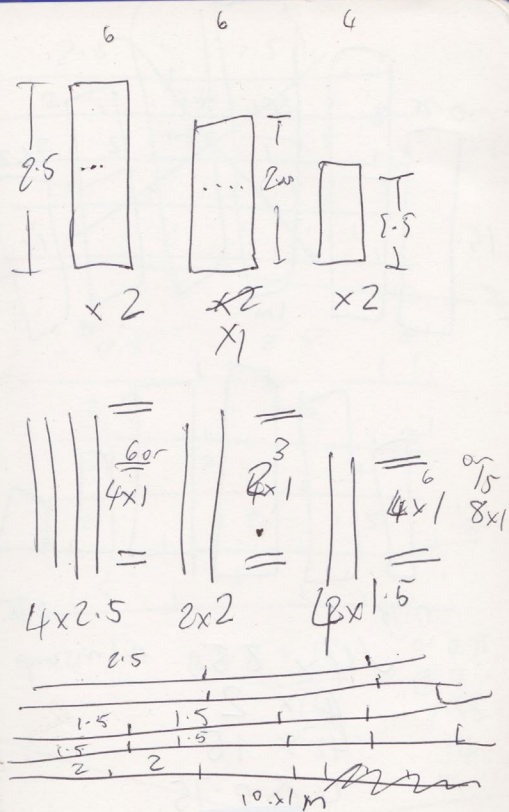 6 6 4
2.5 2.00 1.5
x 2 x2 x 2
x1
6 or 3 6 or
4x1 x1 4x1 8x1
4x2.5 2x2 x1.5
2.5
1.5 1.5
1.5 1.5
2 2
10 x1m